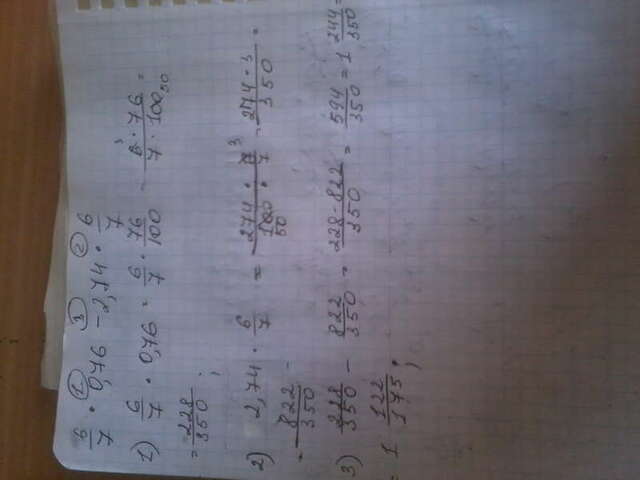 6/7 · ① 0,76 ③ – 2,74 ② · 6/7
1) 6/7 · 0,76 = 6/7 · 76/100 = 6 3 · 76 / 7 · 100 50 =
= 228/350 ;
2) 2,74 · 6/7 = 274 · 6 3 / 100 50 · 7 = 274 · 3 / 350 =
= 822/350
3) 228/350 – 822/350 = 228 - 822 / 350 = 594/350 = 1 244/350 =
= 1 122/175 ;